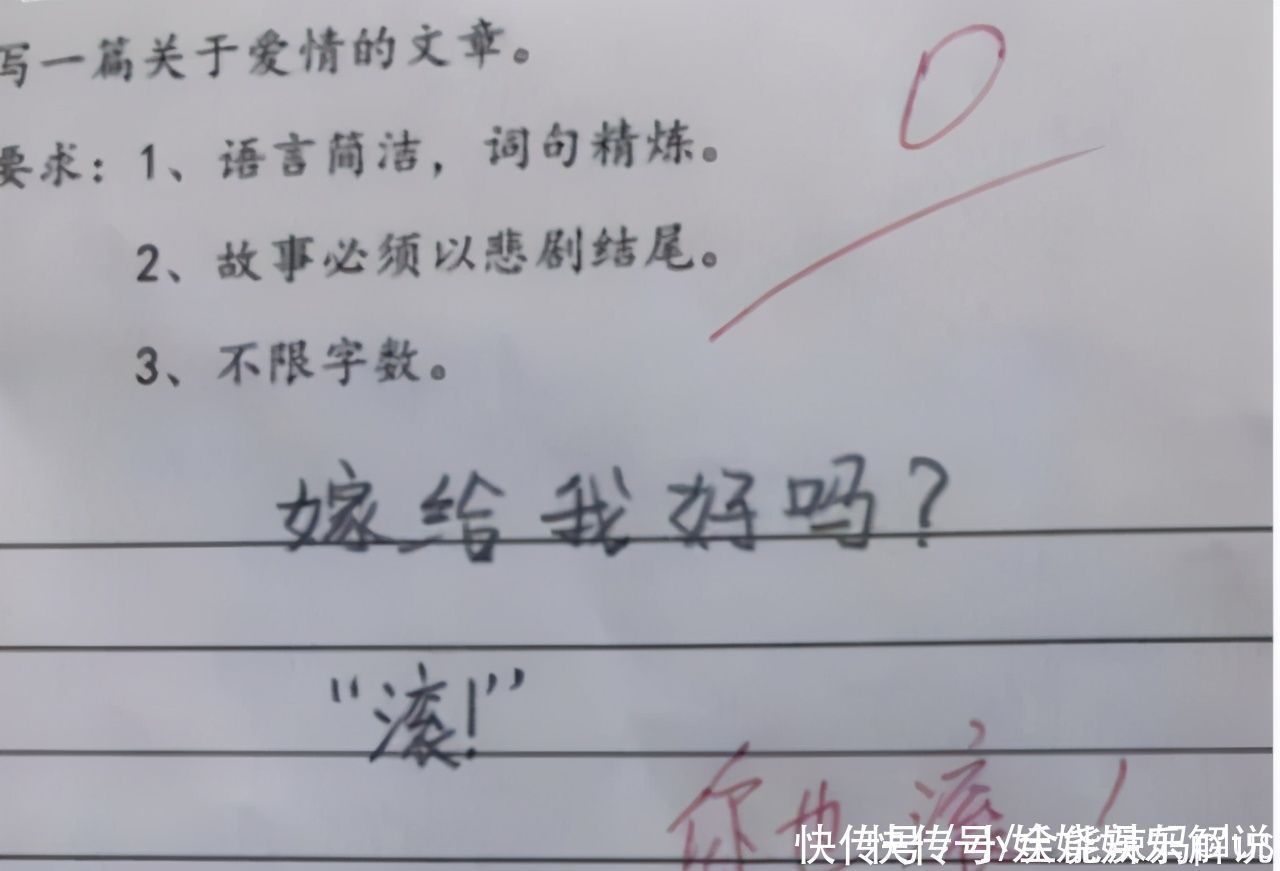 写一篇关于爱情的文章。
要求：1、语言简洁，词句精炼。
2、故事必须以悲剧结尾。
3、不限字数。
0
嫁给我好吗？
“滚！”
你也滚！
快传号/